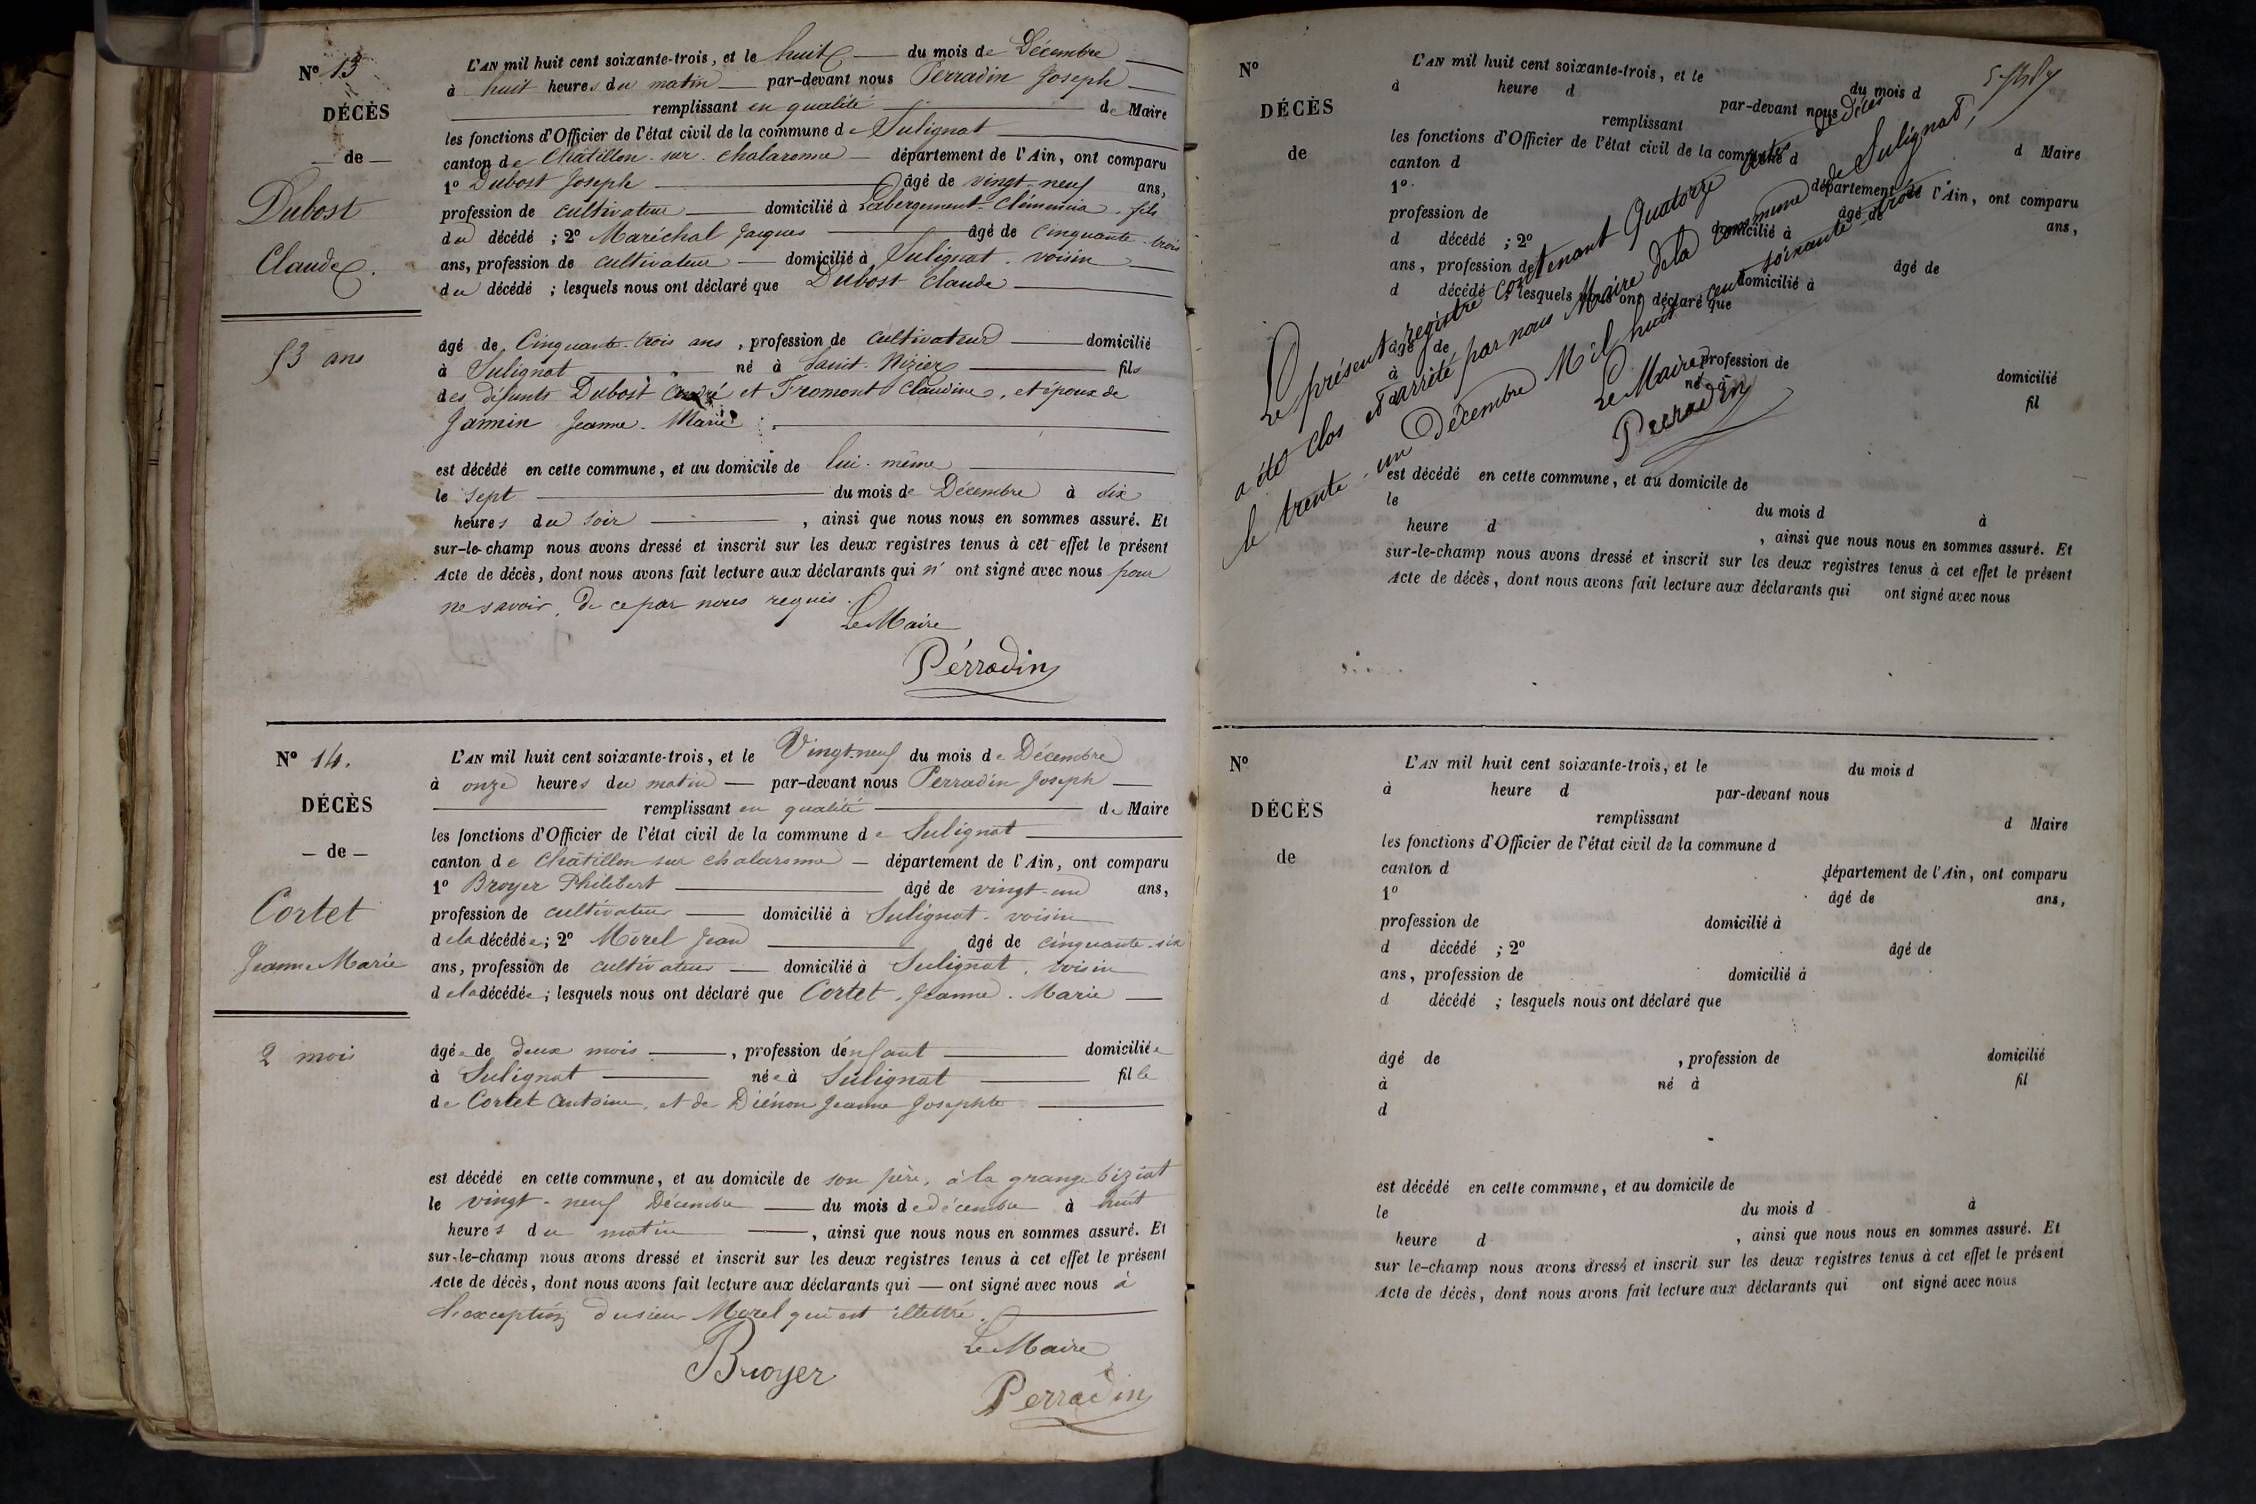 N° 13
DÉCÈS
— de —
Dubost
Claude.
53 ans
L'AN mil huit cent soixante-trois, et le huit du mois de Décembre
à huit heures du matin par-devant nous Perradin Joseph
remplissant en qualité de Maire
les fonctions d'Officier de l'état civil de la commune de Sulignat
canton de Châtillon-sur-Chalaronne département de l'Ain, ont comparu
1° Dubost Joseph âgé de vingt-neuf ans,
profession de cultivateur domicilié à L'abergement-Clémencia, fils
du décédé ; 2° Maréchal Jacques âgé de cinquante-trois
ans, profession de cultivateur domicilié à Sulignat, voisin
du décédé ; lesquels nous ont déclaré que Dubost Claude
âgé de Cinquante-trois ans, profession de cultivateur domicilié
à Sulignat né à Saint-Nizier fils
des défunts Dubost André et Fromont Claudine, et époux de
Jamin Jeanne-Marie
est décédé en cette commune, et au domicile de lui-même
le sept du mois de Décembre à dix
heures du soir, ainsi que nous nous en sommes assuré. Et
sur-le-champ nous avons dressé et inscrit sur les deux registres tenus à cet effet le présent
Acte de décès, dont nous avons fait lecture aux déclarants qui n'ont signé avec nous pour
ne savoir, de ce par nous requis.
Le Maire
Perradin
N° 14.
DÉCÈS
— de —
Cortet
Jeanne Marie
2 mois
L'AN mil huit cent soixante-trois, et le Vingt-neuf du mois de Décembre
à onze heures du matin — par-devant nous Perradin Joseph
remplissant en qualité de Maire
les fonctions d'Officier de l'état civil de la commune de Sulignat
canton de Châtillon sur chalaronne — département de l'Ain, ont comparu
1° Broyer Philibert âgé de vingt-un ans,
profession de cultivateur domicilié à Sulignat, voisin
de la décédée ; 2° Morel Jean âgé de cinquante-six
ans, profession de cultivateur domicilié à Sulignat, voisin
de la décédée ; lesquels nous ont déclaré que Cortet, Jeanne-Marie
âgée de deux mois, profession d'enfant domiciliée
à Sulignat née à Sulignat fille
de Cortet Antoine, et de Diénon Jeanne Josephte
est décédé en cette commune, et au domicile de son père, à la grange biziat
le vingt-neuf Décembre du mois de décembre à huit
heures du matin, ainsi que nous nous en sommes assuré. Et
sur-le-champ nous avons dressé et inscrit sur les deux registres tenus à cet effet le présent
Acte de décès, dont nous avons fait lecture aux déclarants qui — ont signé avec nous à
l'exception du sieur Morel qui est illettré.
Le Maire
Broyer
Perradin
N°
DÉCÈS
de
L'AN mil huit cent soixante-trois, et le du mois d
à heure d par-devant nous
remplissant d Maire
les fonctions d'Officier de l'état civil de la commune d
canton d département de l'Ain, ont comparu
1° âgé de ans,
profession de domicilié à
d décédé ; 2° âgé de
ans, profession de domicilié à
d décédé ; lesquels nous ont déclaré que
âgé de profession de domicilié
à né à fil
Le présent registre contenant Quatorze actes de décès
a été clos et arrêté par nous Maire de la commune de Sulignat,
le trente-un Décembre Mil huit cent soixante-trois
Le Maire
Perradin
est décédé en cette commune, et au domicile de
le du mois d à
heure d , ainsi que nous nous en sommes assuré. Et
sur-le-champ nous avons dressé et inscrit sur les deux registres tenus à cet effet le présent
Acte de décès, dont nous avons fait lecture aux déclarants qui ont signé avec nous
N°
DÉCÈS
de
L'AN mil huit cent soixante-trois, et le du mois d
à heure d par-devant nous
remplissant d Maire
les fonctions d'Officier de l'état civil de la commune d
canton d département de l'Ain, ont comparu
1° âgé de ans,
profession de domicilié à
d décédé ; 2° âgé de
ans, profession de domicilié à
d décédé ; lesquels nous ont déclaré que
âgé de , profession de domicilié
à né à fil
d
est décédé en cette commune, et au domicile de
le du mois d à
heure d , ainsi que nous nous en sommes assuré. Et
sur le-champ nous avons dressé et inscrit sur les deux registres tenus à cet effet le présent
Acte de décès, dont nous avons fait lecture aux déclarants qui ont signé avec nous